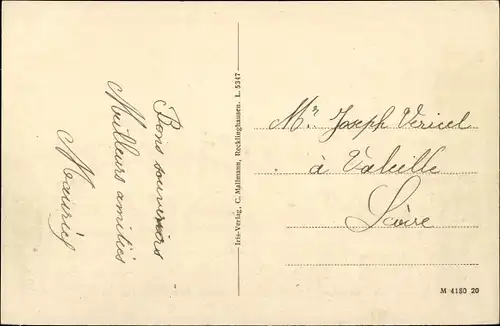 Bons souvenirs
Meilleurs amitiés
Iris-Verlag, C. Mallmann, Recklinghausen. L. 5347
Mr. Joseph Vericel
à Valeille
Loire
M 4180 20